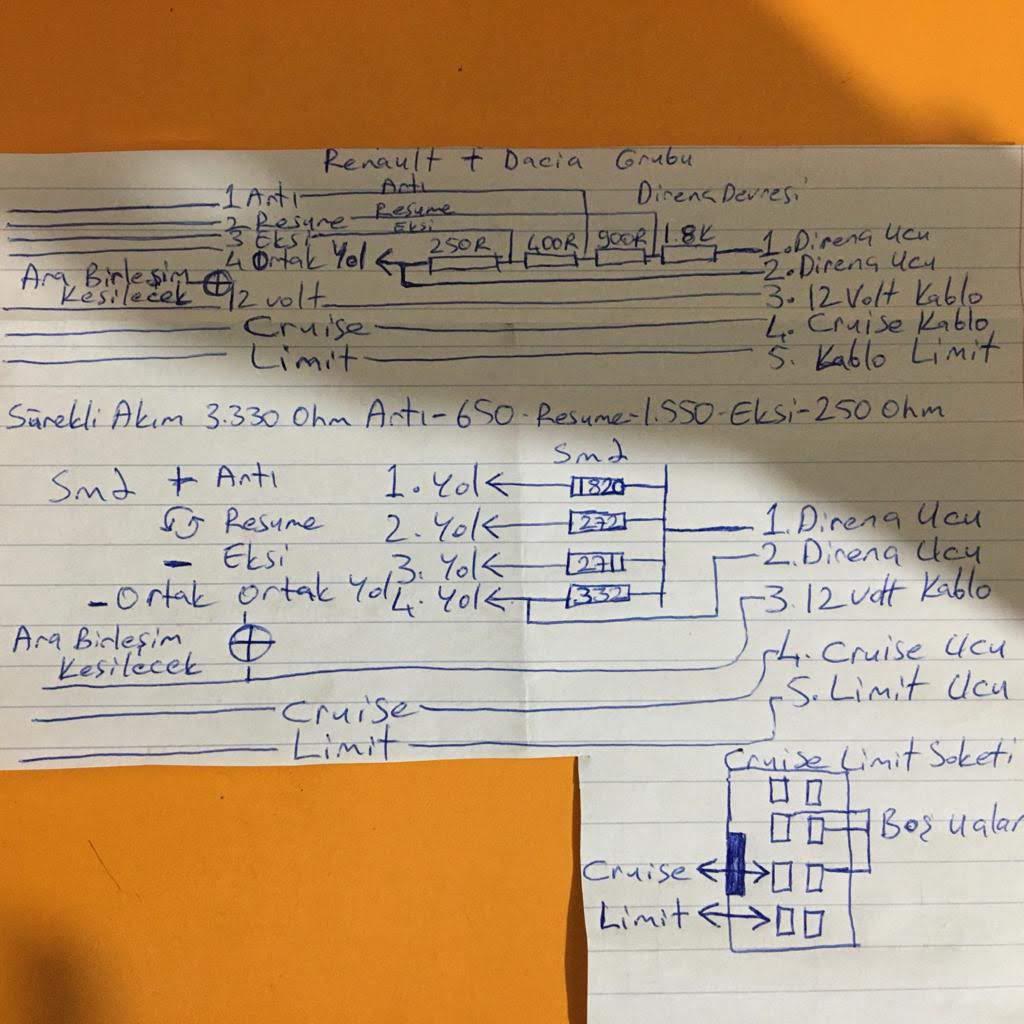 Renault + Dacia Grubu
1 Artı Artı Direnç Devresi
2 Resume Resume
3 Eksi Eksi
4 Ortak Yol 250R 400R 900R 1.8K 1. Direnç Ucu
2. Direnç Ucu
Ara Birleşim
Kesilecek 12 volt 3. 12 Volt Kablo
Cruise 4. Cruise Kablo
Limit 5. Kablo Limit
Sürekli Akım 3.330 Ohm Artı-650-Resume-1.550-Eksi-250 Ohm
Smd
Smd + Artı 1. Yol 1820
Resume 2. Yol 272 1. Direnç Ucu
- Eksi 3. Yol 271 2. Direnç Ucu
- Ortak Ortak Yol 4. Yol 332 3. 12 volt Kablo
Ara Birleşim
Kesilecek
4. Cruise Ucu
5. Limit Ucu
Cruise
Limit
Cruise Limit Soketi
Boş uçlar
Cruise
Limit